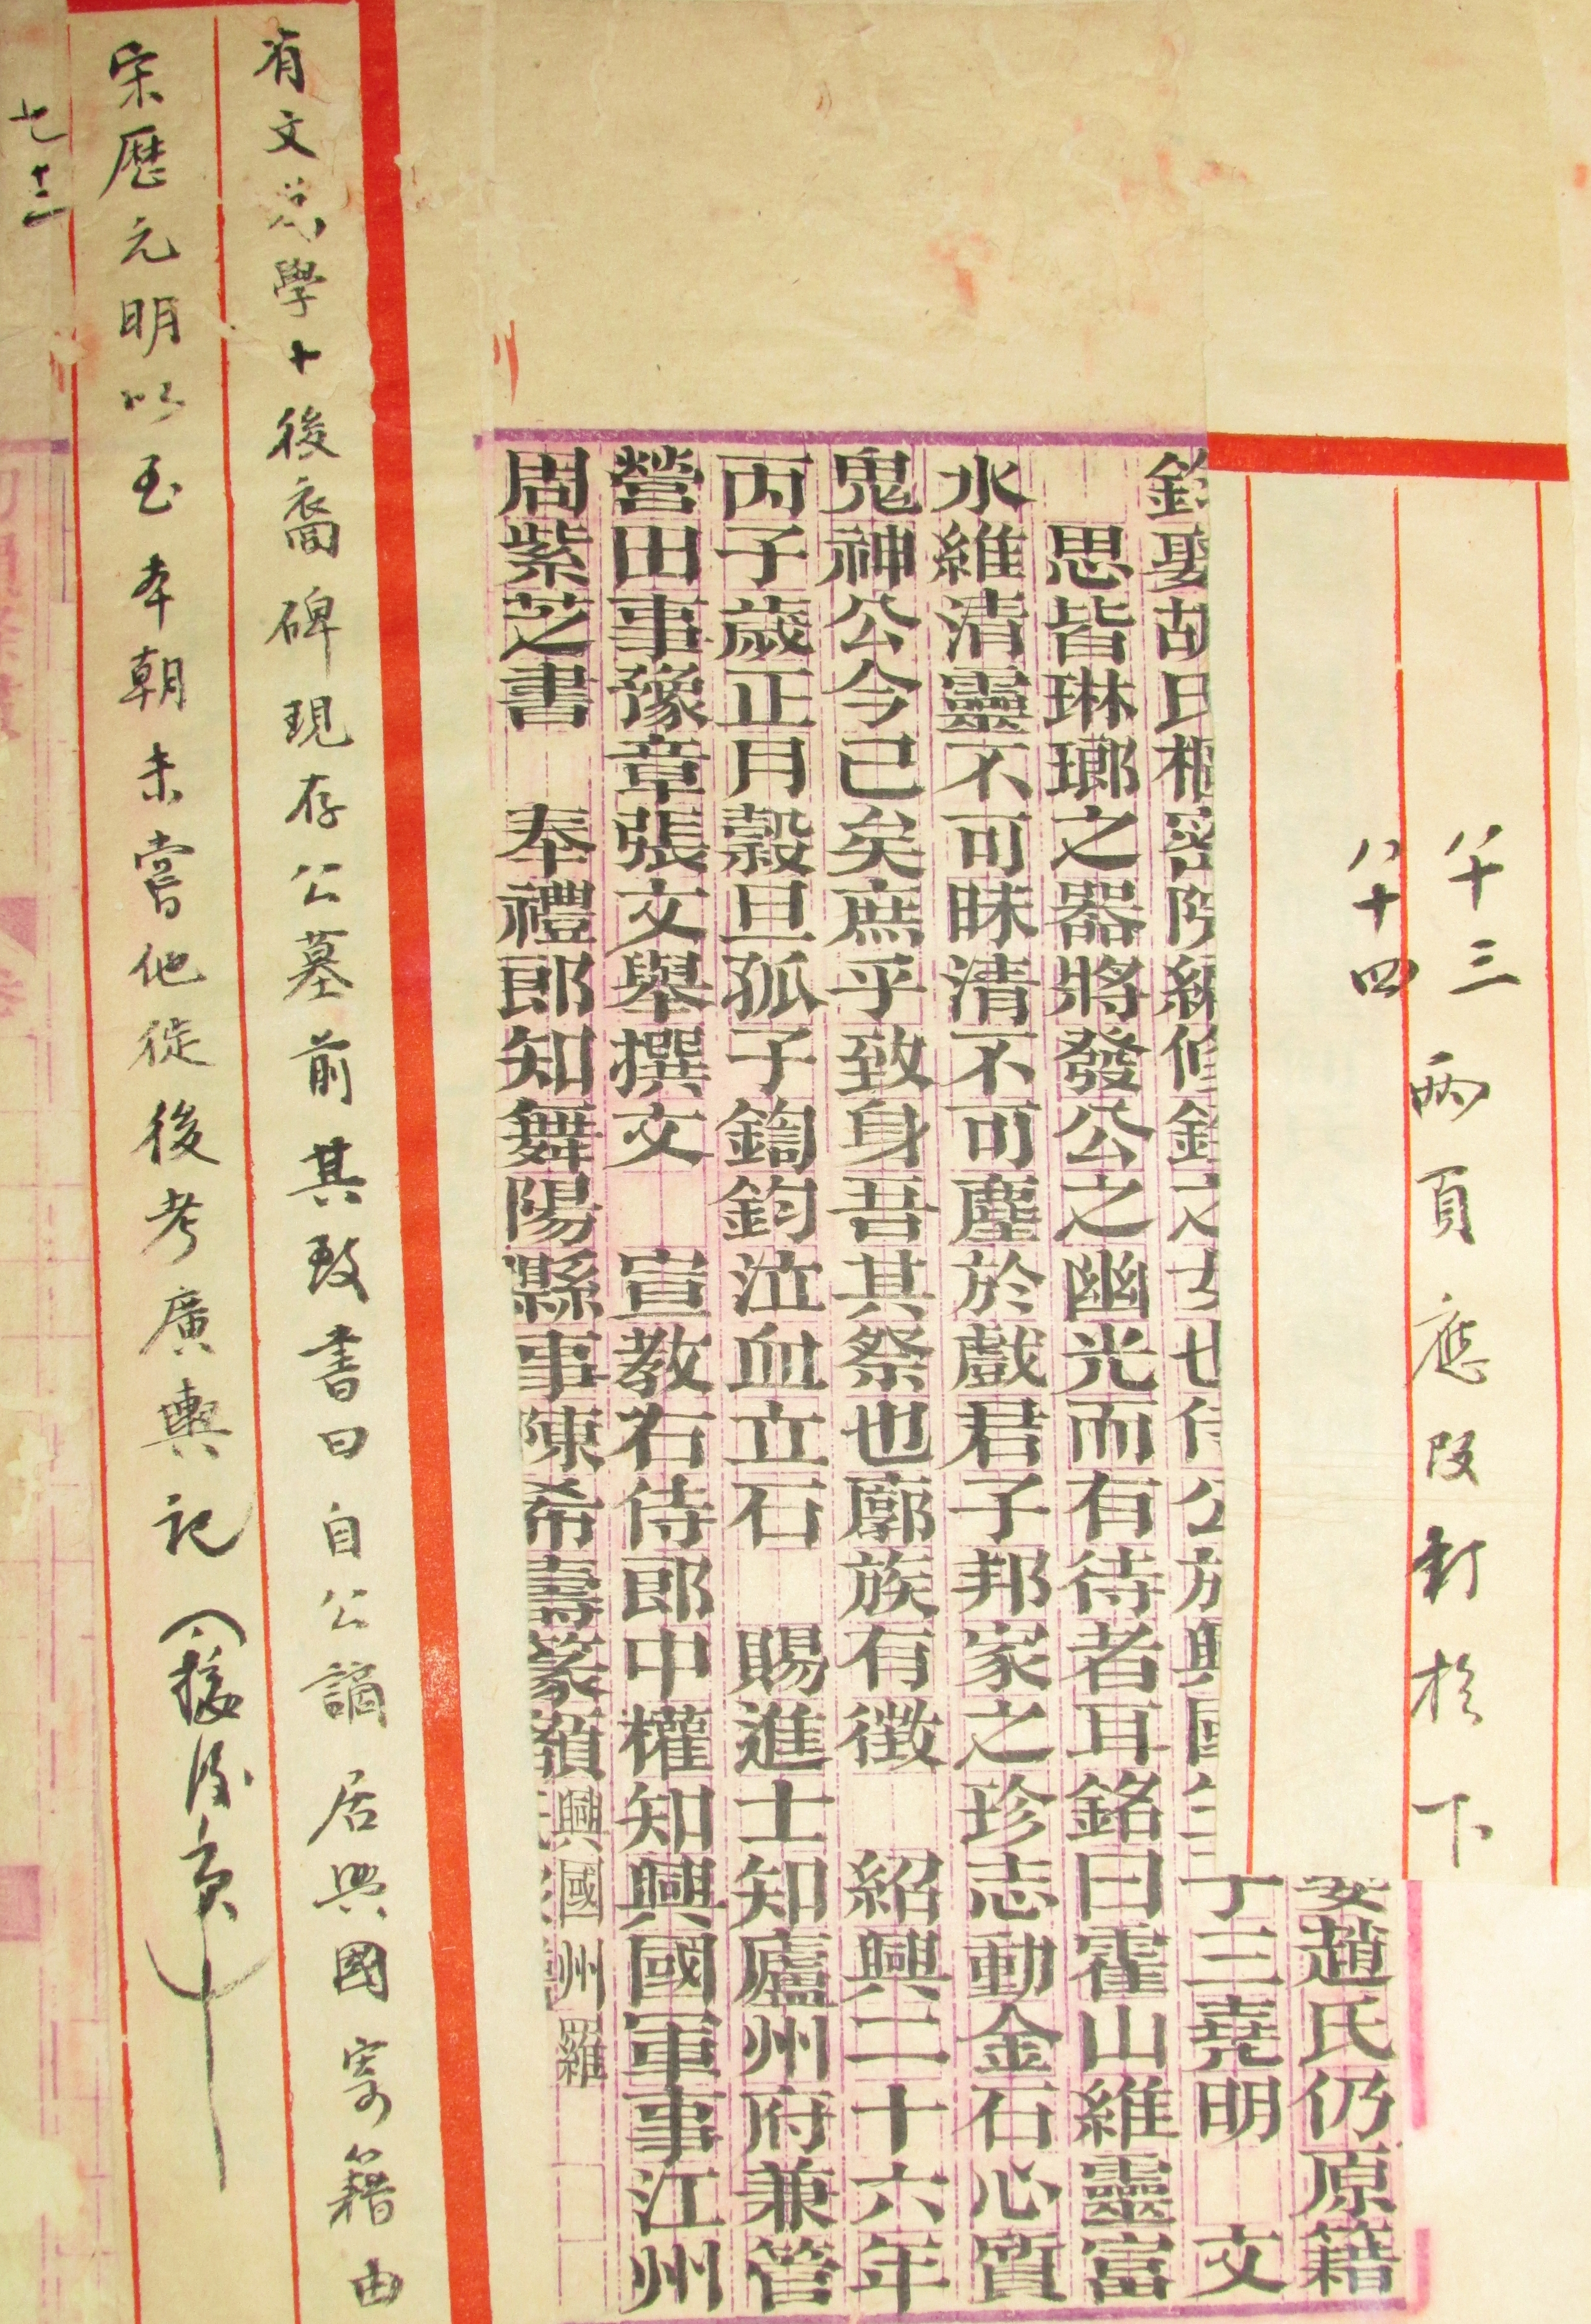 八十三兩頁應改訂於下
八十四
娶趙氏仍原籍
丁三堯明 文
娶胡氏樞密院編修鉟之女也侍公於興國生
思皆琳瑯之器將發公之幽光而有待者耳銘曰霍山維靈富
水維清靈不可昧清不可塵於戲君子邦家之珍志動金石心質
鬼神公今已矣庶乎致身吾其祭也廓族有徵 紹興二十六年
丙子歲正月穀旦孤子鍧鈞泣血立石 賜進士知廬州府兼管
營田事豫章張文舉撰文 宣教右侍郎中權知興國軍事江州
周紫芝書 奉禮郎知舞陽縣事陳希壽篆額興國州羅
有文學十後裔碑現存公墓前其致書曰自公謫居興國寄籍由
宋歷元明以至本朝未嘗他徙後考廣輿記（接後頁）
七十三